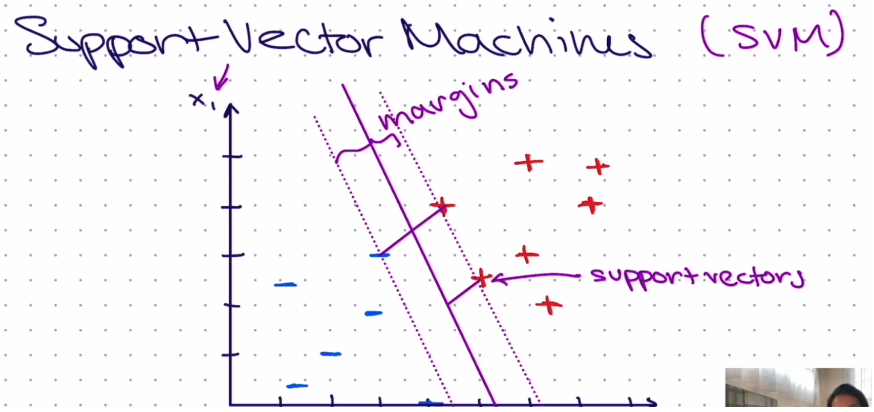 Support Vector Machines (SVM)
x₁
margins
support vectors